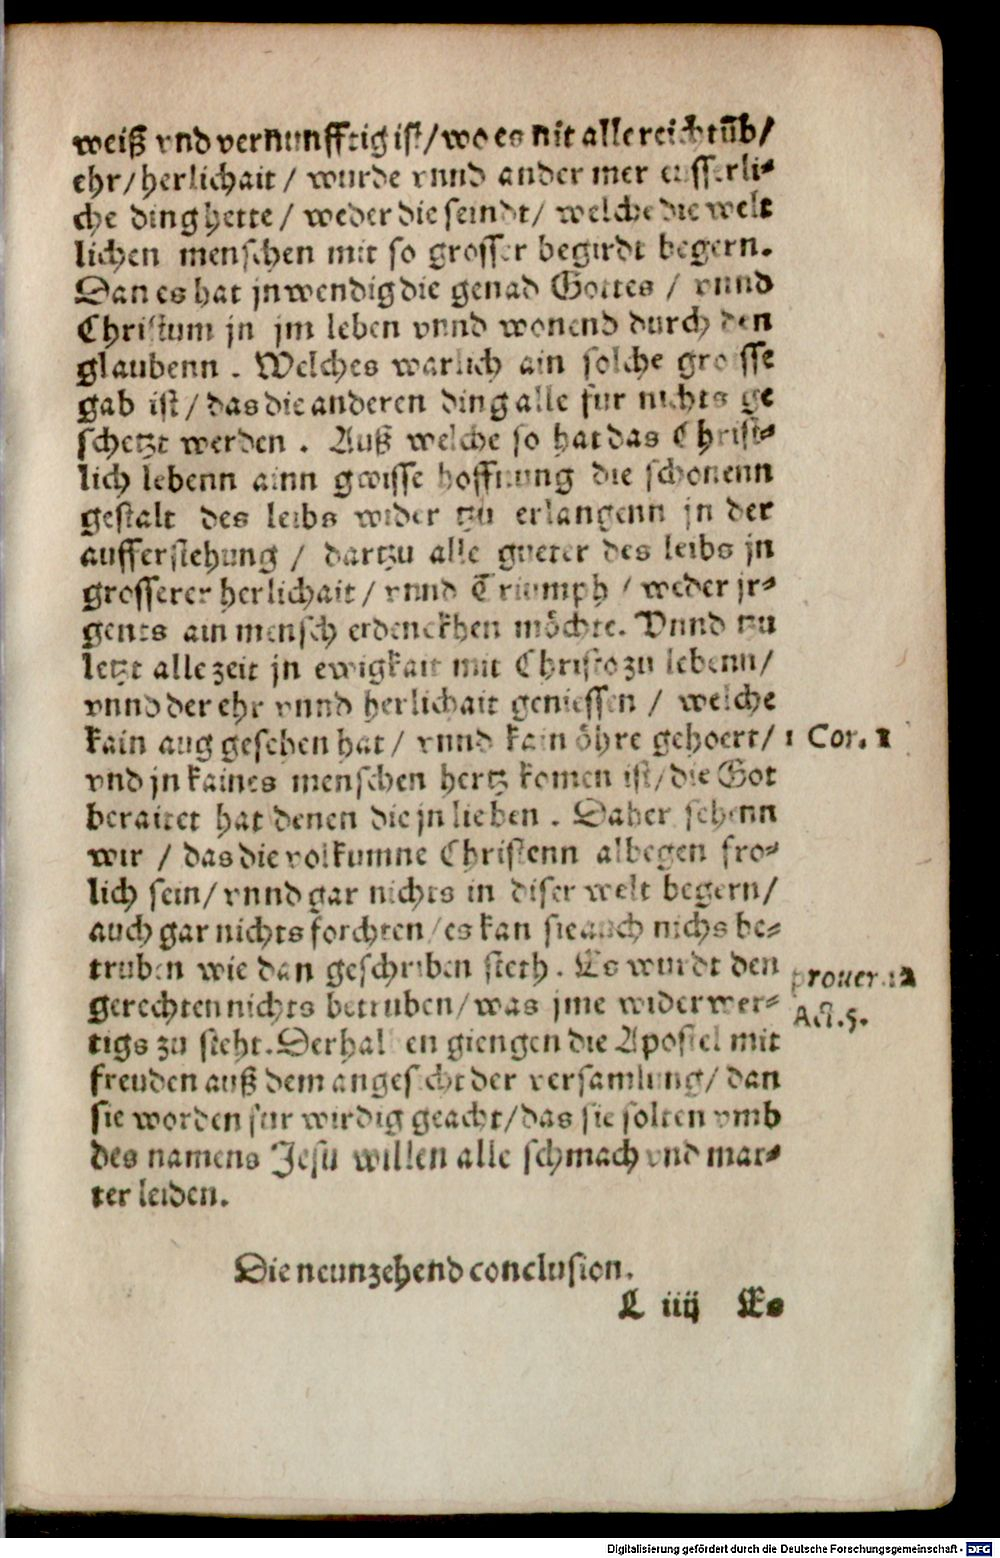 weiß vnd vernunfftig ist/ wo es nit alle reichtūb/
ehr/ herlichait / wurde vnnd ander mer eusserli⸗
che ding hette / weder die seindt/ welche die welt
lichen menschen mit so grosser begirdt begern.
Dan es hat jnwendig die genad Gottes / vnnd
Christum jn jm leben vnnd wonend durch den
glaubenn . Welches warlich ain solche grosse
gab ist / das die anderen ding alle fur nichts ge
schetzt werden . Auß welche so hat das Christ⸗
lich lebenn ainn gwisse hoffnung die schonenn
gestalt des leibs wider zu erlangenn jn der
aufferstehung / dartzu alle gueter des leibs jn
grosserer herlichait / vnnd Triumph / weder jr⸗
gents ain mensch erdenckhen möchte. Vnnd zu
letzt alle zeit jn ewigkait mit Christo zu lebenn/
vnnd der ehr vnnd herlichait geniessen / welche
kain aug gesehen hat / vnnd kain öhre gehoert/ 1 Cor. 2
vnd jn kaines menschen hertz komen ist/ die Got
beraitet hat denen die jn lieben . Daher sehenn
wir / das die volkumne Christenn albegen fro⸗
lich sein/ vnnd gar nichts in diser welt begern/
auch gar nichts forchten / es kan sie auch nichs be⸗
truben wie dan geschriben steth . Es wurdt den prouer. 12
gerechten nichts betruben/ was jme widerwer⸗
tigs zu steht. Derhalben giengen die Apostel mit Act. 5.
freuden auß dem angesicht der versamlung/ dan
sie worden fur wirdig geacht/ das sie solten vmb
des namens Jesu willen alle schmach vnd mar⸗
ter leiden.
Die neunzehend conclusion.
L iiij Es
Digitalisierung gefördert durch die Deutsche Forschungsgemeinschaft - DFG